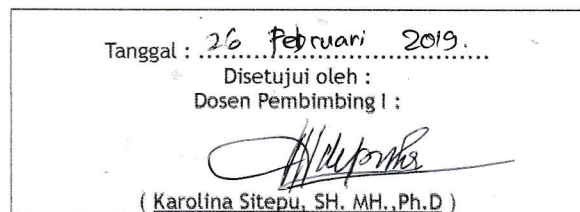 Tanggal : 26 Februari 2019.
Disetujui oleh :
Dosen Pembimbing I :
( Karolina Sitepu, SH. MH.,Ph.D )